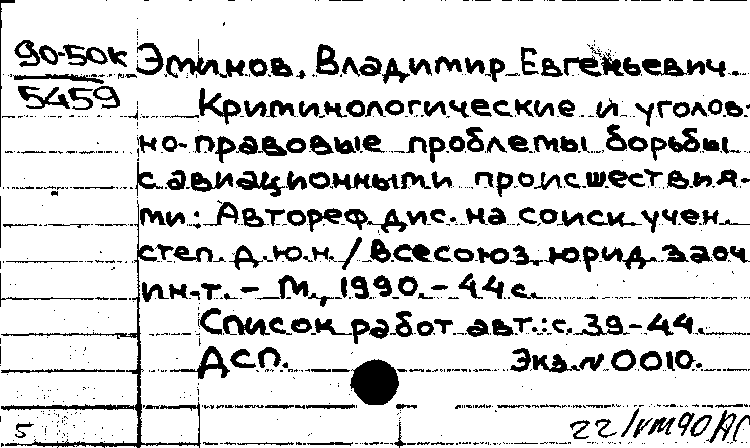 90-50к Эминов, Владимир Евгеньевич
5459 Криминологические и уголов-
но-правовые проблемы борьбы
с авиационными происшествия-
ми: Автореф. дис. на соиск. учен.
степ. д.ю.н. / Всесоюз. юрид. заоч
ин-т. - М., 1990. - 44 с.
Список работ авт.: с. 39-44.
ДСП. Экз. N 0010.
5